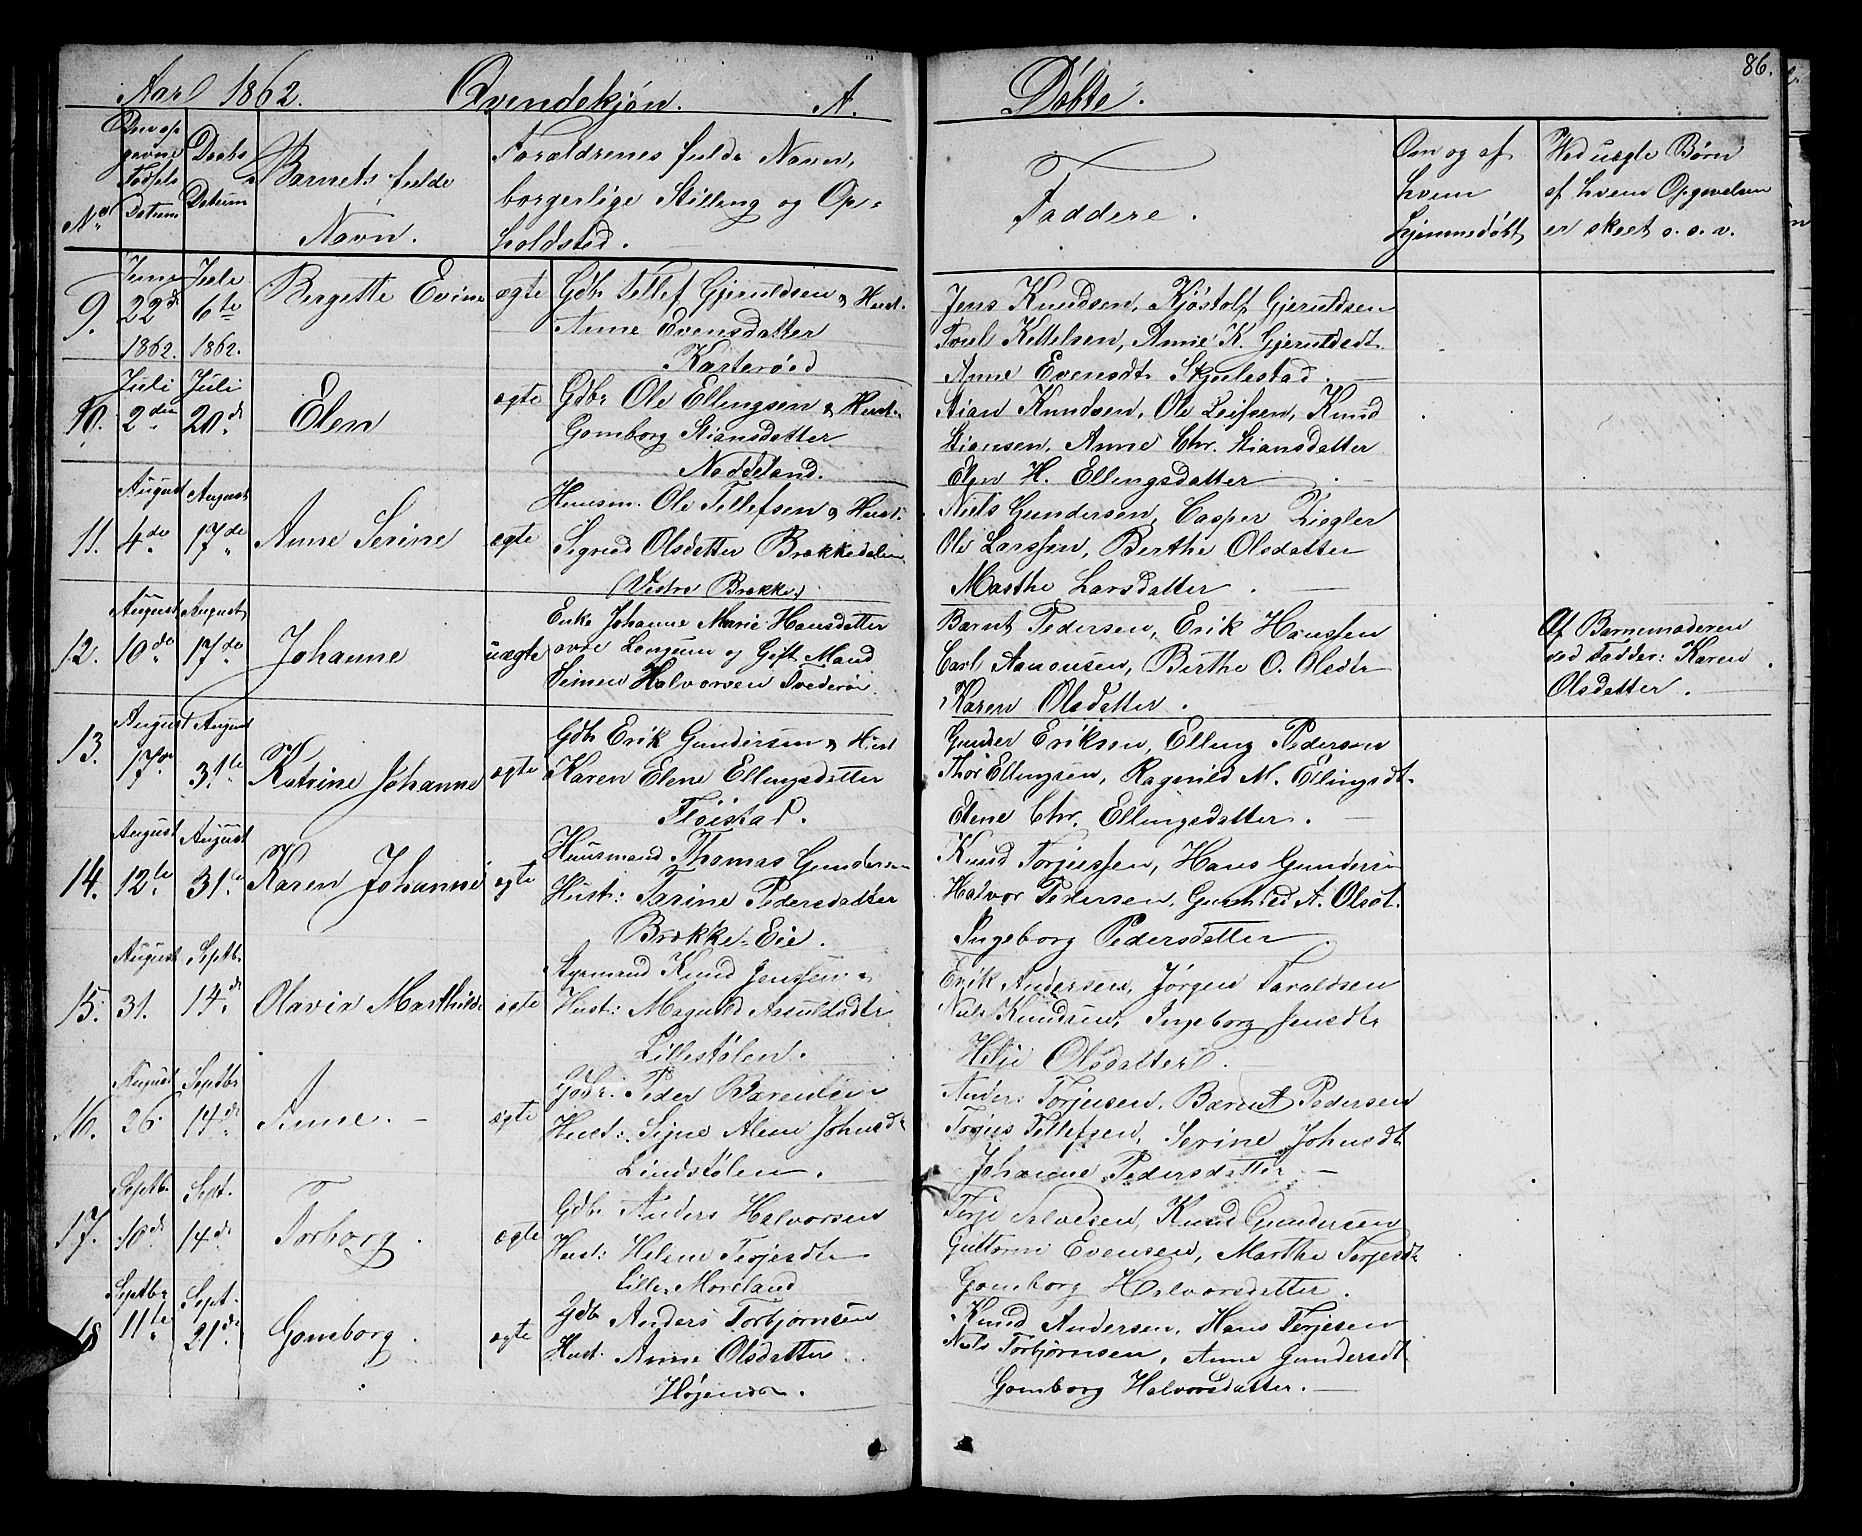 Aar 1862. Qvindekjøn. A. Døbte.
86.
No.
Den opgavne Fødsels Datum
Daabs Datum
Barnets fulde Navn.
Forældrenes fulde Navn, borgerlige Stilling og Opholdsted.
Faddere.
Om og af hvem hjemmedøbt
Ved uægte Børn af hvem Opgivelsen er skeet o. s. v.
9. Juni 22d 1862. Juli 6te 1862. Bergette Evine ægte Gdbr Tellef Gjeruldsen & Hust.
Anne Evensdatter
Jens Knudsen, Kjøstolf Gjeruldsen
Kittelsen, Anne K. Gjeruldsdt.
Anne Evensdt. Skjulestad.
10. Juli 2den Juli 20d. Elen ægte Gdbr Ole Ellingsen & Hust.
Gomborg Stiansdatter
Naddeland.
Stian Knudsen, Ole Leifsen, Knud
Stiansen, Anne Chr. Stiansdatter
Elen H. Ellingsdatter
11. August 4de August 17de Anne Serine ægte Huusm. Ole Tellefsen & Hust.
Sigrid Olsdatter Brækkedalen
(Vestre Brække)
Niels Gundersen, Casper Ziegler
Ole Larssen, Berthe Olsdatter
Marthe Larsdatter.
12. August 10de August 17de Johanne uægte Enke Johanne Marie Hansdatter
øvre Longum og Gift Mand
Simen Halvorsen
Bærnt Pedersen, Erik Hanssen
Carl Aanonsen, Berthe O. Olsdtr
Karen Olsdatter.
Af Barnemoderen
ved Fadder: Karen
Olsdatter.
13. August 17de August 31te Katrine Johanne ægte Gdbr Erik Gundersen & Hust
Karen Elene Ellingsdatter
Fløistad.
Gunder Eriksen, Elling Pedersen
Thor Ellingsen, Ragnild M. Ellingsdt.
Elene Chr. Ellingsdatter.
14. August 12te August 31te Karen Johanne ægte Huusmand Thomas Gundersen
Hust: Tarine Pedersdatter
Brække-Eie.
Knud Torjussen, Hans Gundersen
Halvor Pedersen, Gunhild A. Olsdt.
Ingeborg Pedersdatter
15. August 31. Septbr. 14d. Olavia Marthilde ægte Styrmand Knud Jenssen &
Hust: Magnild Asuldsdtr
Lillestølen.
Erik Andersen, Jørgen Taraldsen
Niels Knudsen, Ingeborg Jensdtr
Helje Olsdatter.
16. August 26 Septbr 14d. Anne. ægte Gdbr. Peder Bærentsen
Hust: Signe Aline Johnsdtr
Lindstølen.
Anders Torjusen, Bærnt Pedersen
Torjus Tellefsen, Serine Johnsdt.
Johanne Pedersdatter
17. Septbr. 10d. Sept. 14d. Torborg. ægte Gdbr Anders Halvorsen
Hust: Helene Terjesdtr
Lille Moreland
Terje Salvesen, Knud Gundersen
Guttorm Evensen, Marthe Terjesdtr
Gomborg Halvorsdatter.
18 Septbr 11te Sept. 21d. Gomborg. ægte Gdbr Anders Torbjørnsen
Hust. Anne Olsdatter
Knud Andersen, Hans Terjesen
Niels Torbjørnsen, Anne Gundersdt.
Gomborg Halvorsdatter.